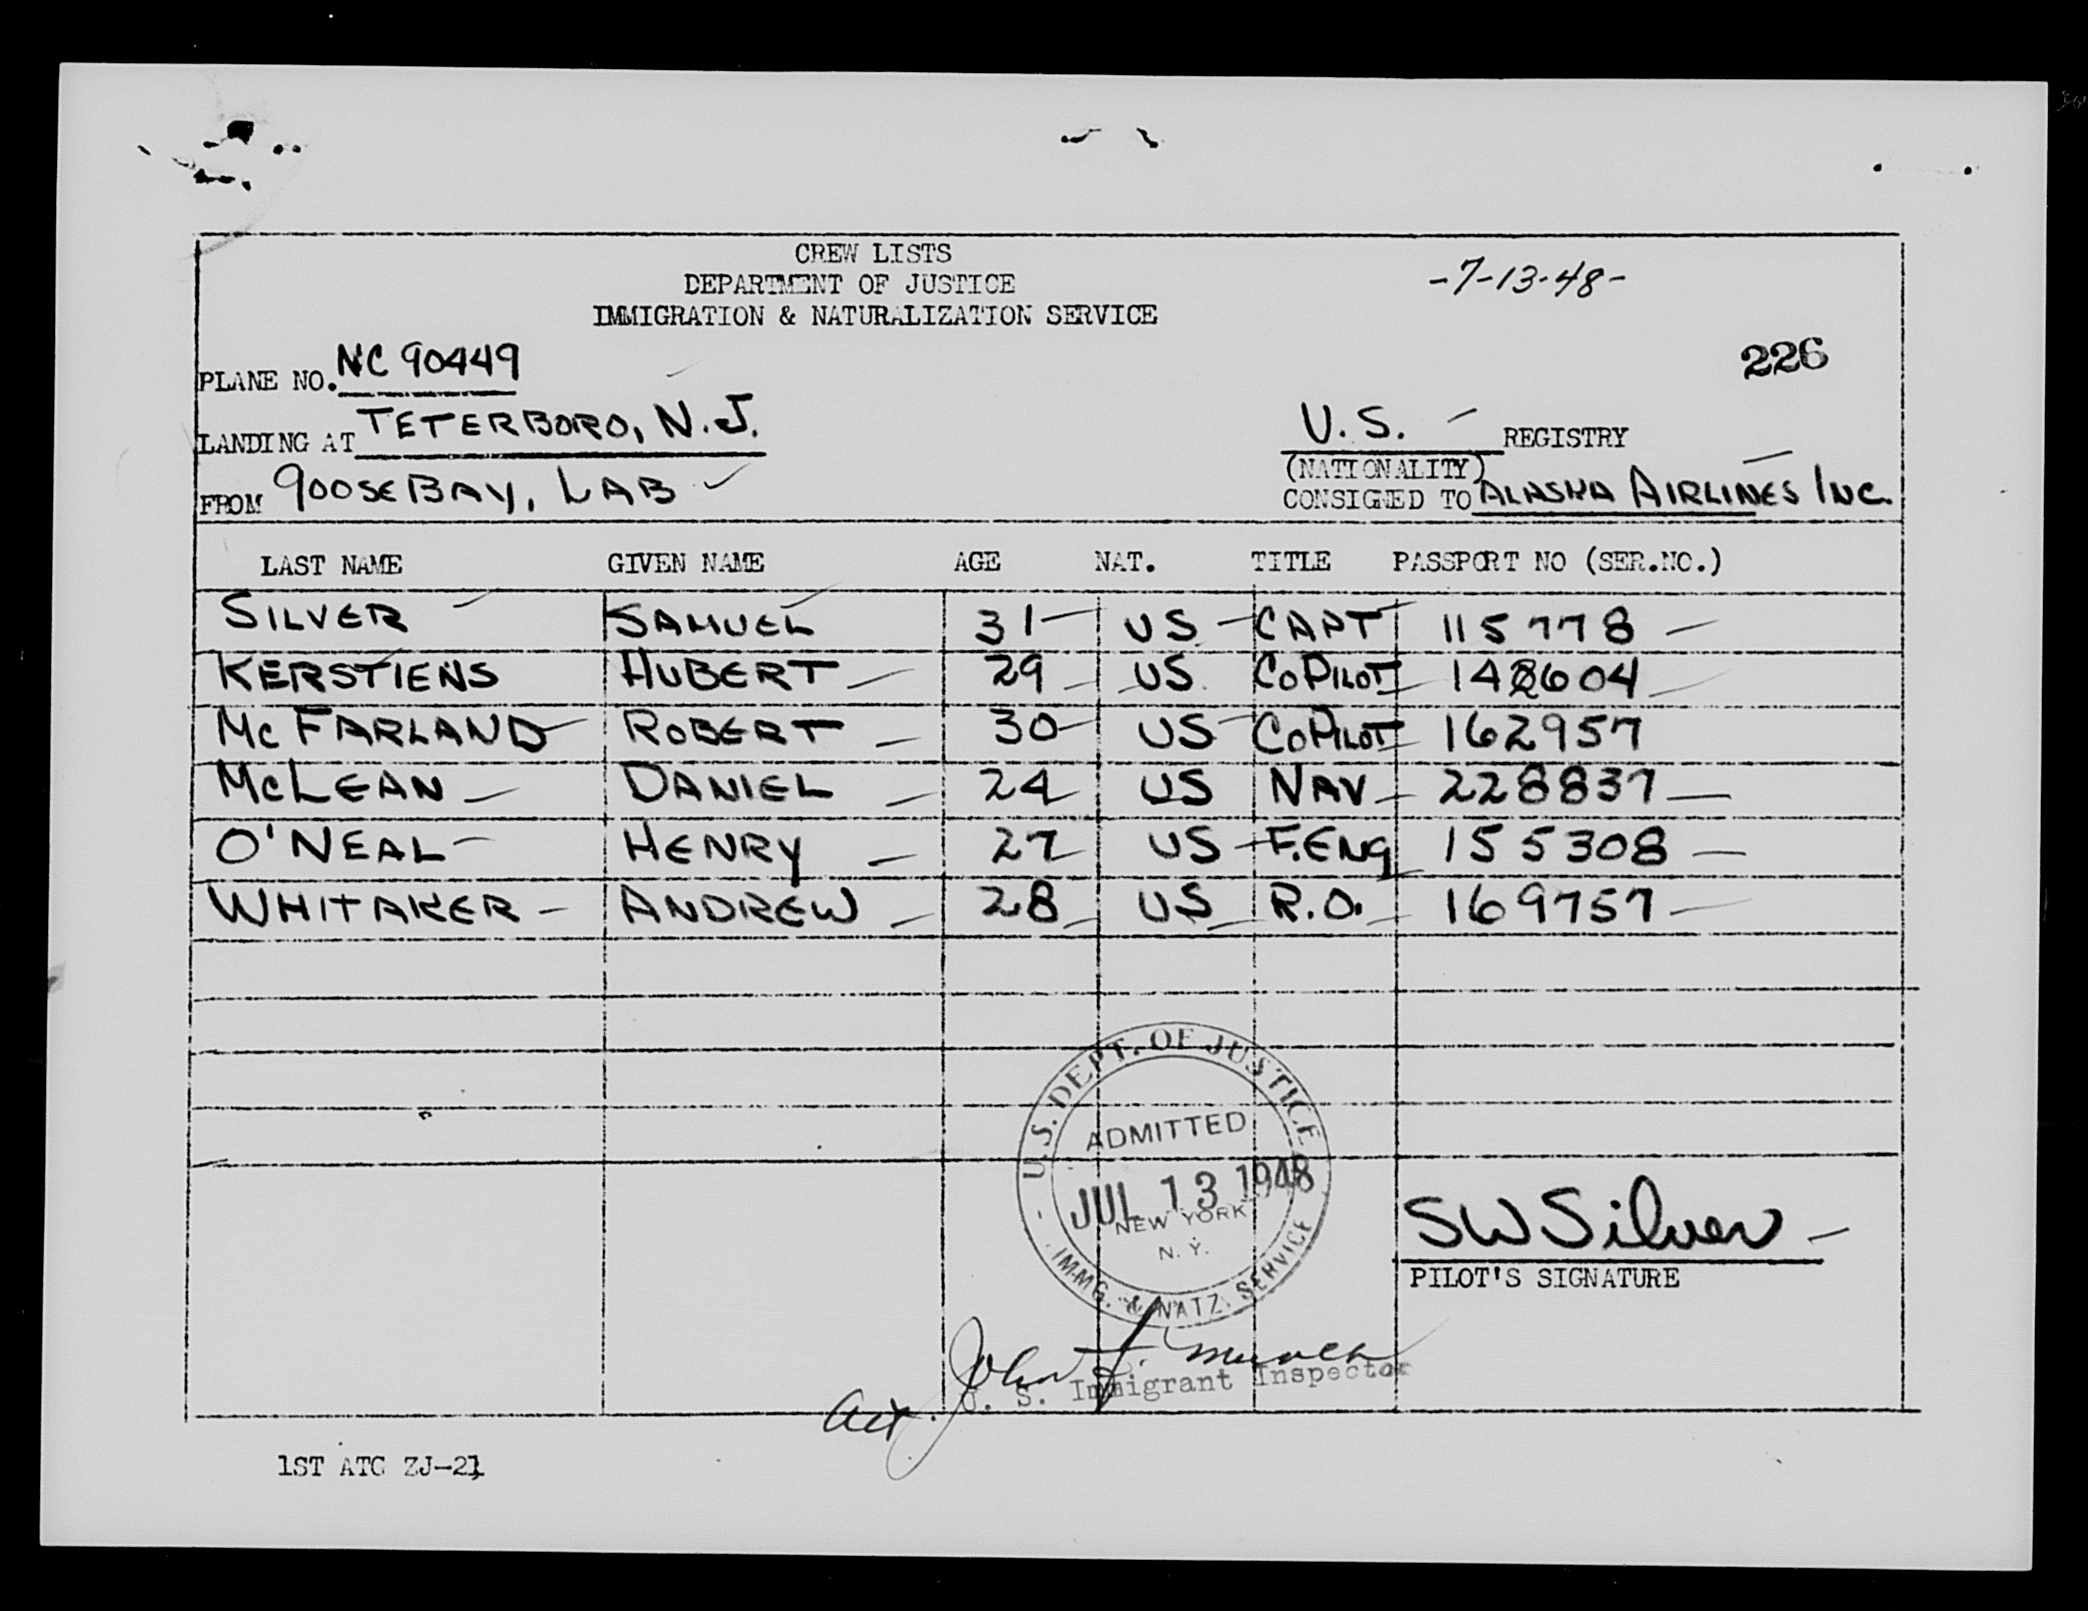 CREW LISTS
DEPARTMENT OF JUSTICE
IMMIGRATION & NATURALIZATION SERVICE
-7-13-48-
226
PLANE NO. NC 90449
LANDING AT TETERBORO, N.J.
FROM GOOSEBAY, LAB
U.S. REGISTRY
(NATIONALITY)
CONSIGNED TO ALASKA AIRLINES INC.
LAST NAME GIVEN NAME AGE NAT. TITLE PASSPORT NO (SER.NO.)
SILVER SAMUEL 31 US CAPT 115778
KERSTIENS HUBERT 29 US COPILOT
McFARLAND ROBERT 30 US COPILOT 162957
McLEAN DANIEL 24 US NAV 228837
O'NEAL HENRY 27 US F.ENG 155308
WHITAKER ANDREW 28 US R.O. 169757
U.S. DEPT. OF JUSTICE
ADMITTED
JUL 13 1948
NEW YORK
N.Y.
IMMG. & NATZ. SERVICE
SW Silver
PILOT'S SIGNATURE
John J.
U. S. Immigrant Inspector
Act.
1ST ATC ZJ-21